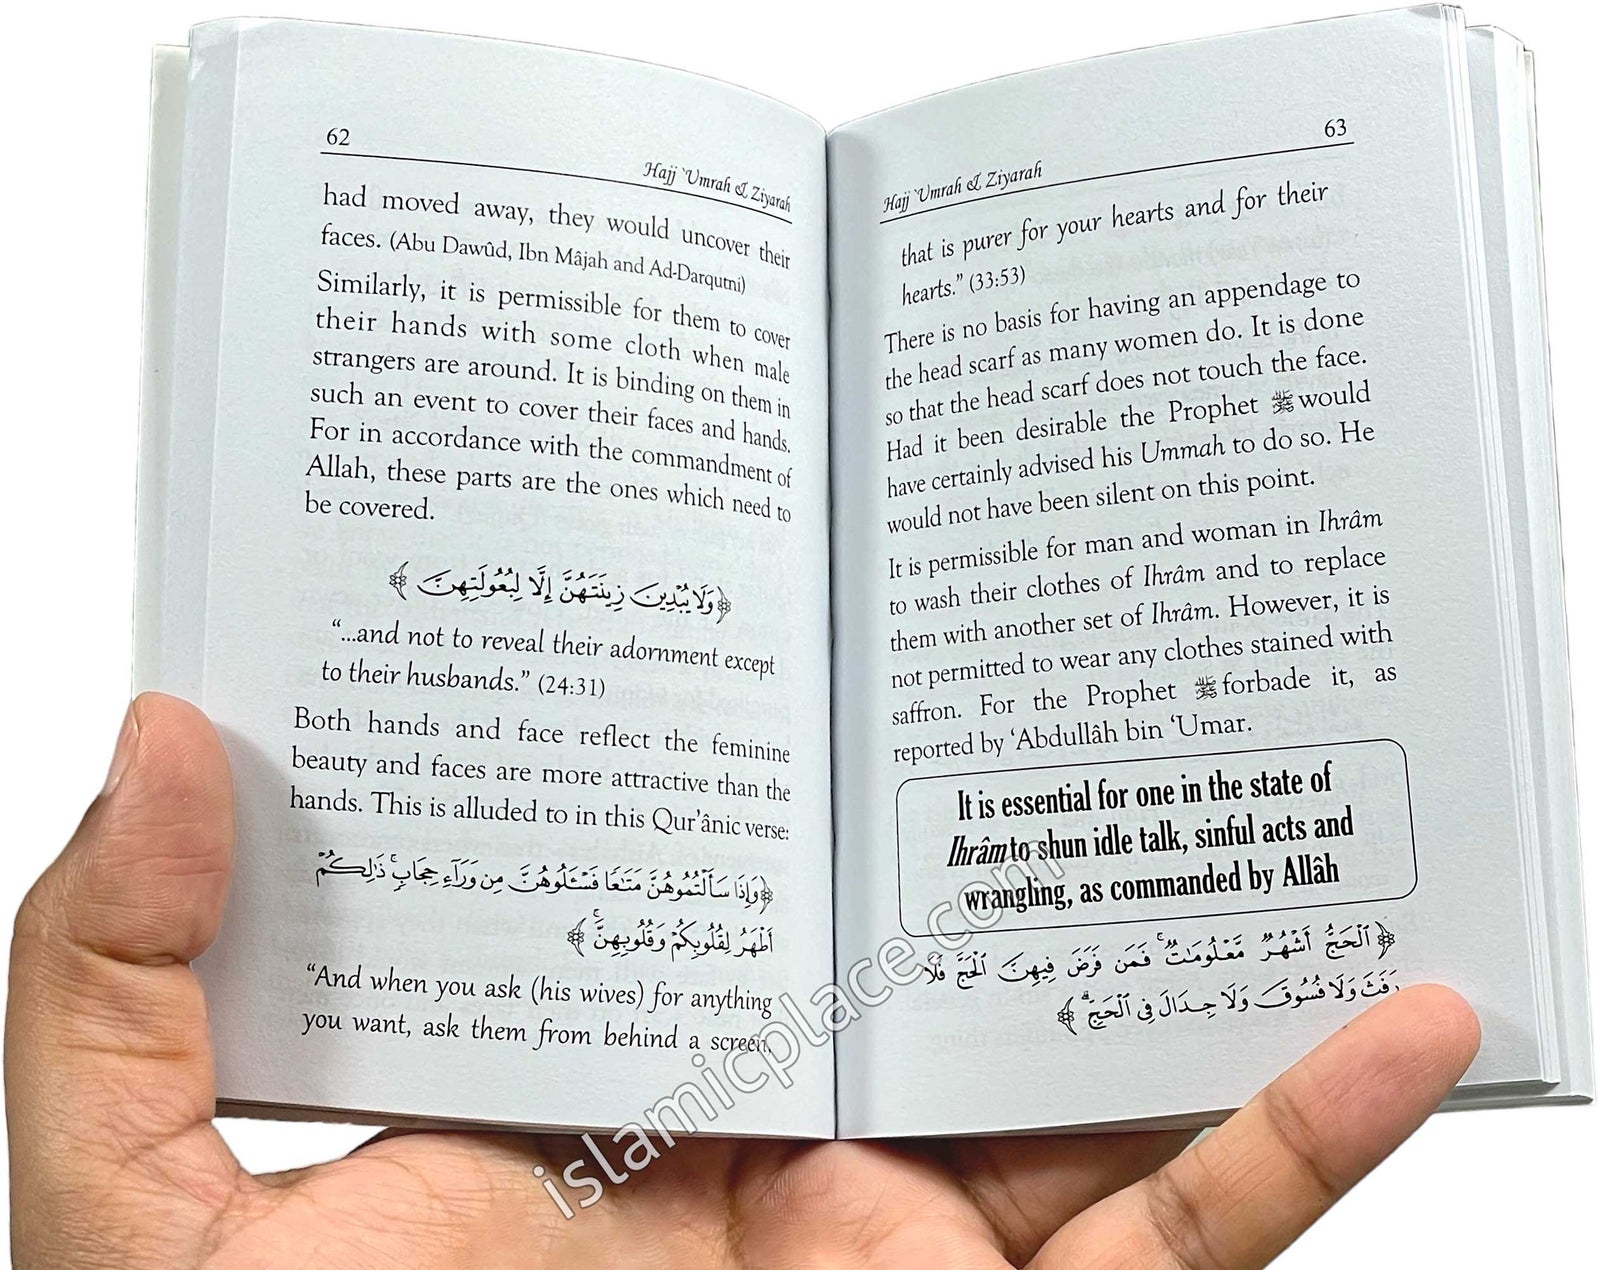 62
Hajj `Umrah & Ziyarah
had moved away, they would uncover their
faces. (Abu Dawûd, Ibn Mâjah and Ad-Darqutni)
Similarly, it is permissible for them to cover
their hands with some cloth when male
strangers are around. It is binding on them in
such an event to cover their faces and hands.
For in accordance with the commandment of
Allah, these parts are the ones which need to
be covered.
﴿وَلَا يُبْدِينَ زِينَتَهُنَّ إِلَّا لِبُعُولَتِهِنَّ﴾
“...and not to reveal their adornment except
to their husbands.” (24:31)
Both hands and face reflect the feminine
beauty and faces are more attractive than the
hands. This is alluded to in this Qur’ânic verse:
﴿وَإِذَا سَأَلْتُمُوهُنَّ مَتَـٰعًا فَسْـَٔلُوهُنَّ مِن وَرَآءِ حِجَابٍ ۚ ذَٰلِكُمْ
أَطْهَرُ لِقُلُوبِكُمْ وَقُلُوبِهِنَّ ۚ﴾
“And when you ask (his wives) for anything
you want, ask them from behind a screen,
63
Hajj `Umrah & Ziyarah
that is purer for your hearts and for their
hearts.” (33:53)
There is no basis for having an appendage to
the head scarf as many women do. It is done
so that the head scarf does not touch the face.
Had it been desirable the Prophet ﷺ would
have certainly advised his Ummah to do so. He
would not have been silent on this point.
It is permissible for man and woman in Ihrâm
to wash their clothes of Ihrâm and to replace
them with another set of Ihrâm. However, it is
not permitted to wear any clothes stained with
saffron. For the Prophet ﷺ forbade it, as
reported by ‘Abdullâh bin ‘Umar.
It is essential for one in the state of
Ihrâm to shun idle talk, sinful acts and
wrangling, as commanded by Allâh
﴿ٱلْحَجُّ أَشْهُرٌ مَّعْلُومَـٰتٌ ۚ فَمَن فَرَضَ فِيهِنَّ ٱلْحَجَّ فَلَا
رَفَثَ وَلَا فُسُوقَ وَلَا جِدَالَ فِى ٱلْحَجِّ ۗ﴾
islamicplace.com